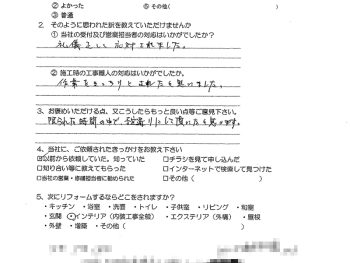 ② よかった　⑤ その他(　　)
③ 普通
2. そのように思われた訳を教えていただけませんか
① 当社の受付及び営業担当者の対応はいかがでしたか？
礼儀正しく応対されました。
② 施工時の工事職人の対応はいかがでしたか。
作業をきっちりとされたと思いました。
3. お褒めいただける点、又こうしたらもっと良い点等ご意見下さい。
限られた時間の中で、段取りにして頂いたと思います。
4. 当社に、ご依頼されたきっかけをお教え下さい
□以前から依頼していた。知っていた　□チラシを見て申し込んだ
□知り合い等に教えてもらった　□インターネットで検索して見つけた
□当社の営業・準備担当者に勧められた　□その他(　　)
5. 次にリフォームするならどこをされますか？
・キッチン ・浴室 ・洗面 ・トイレ ・子供室 ・リビング ・和室
・玄関 ・インテリア(内装工事全般) ・エクステリア(外構) ・屋根
・外壁 ・増築 ・その他(　　)